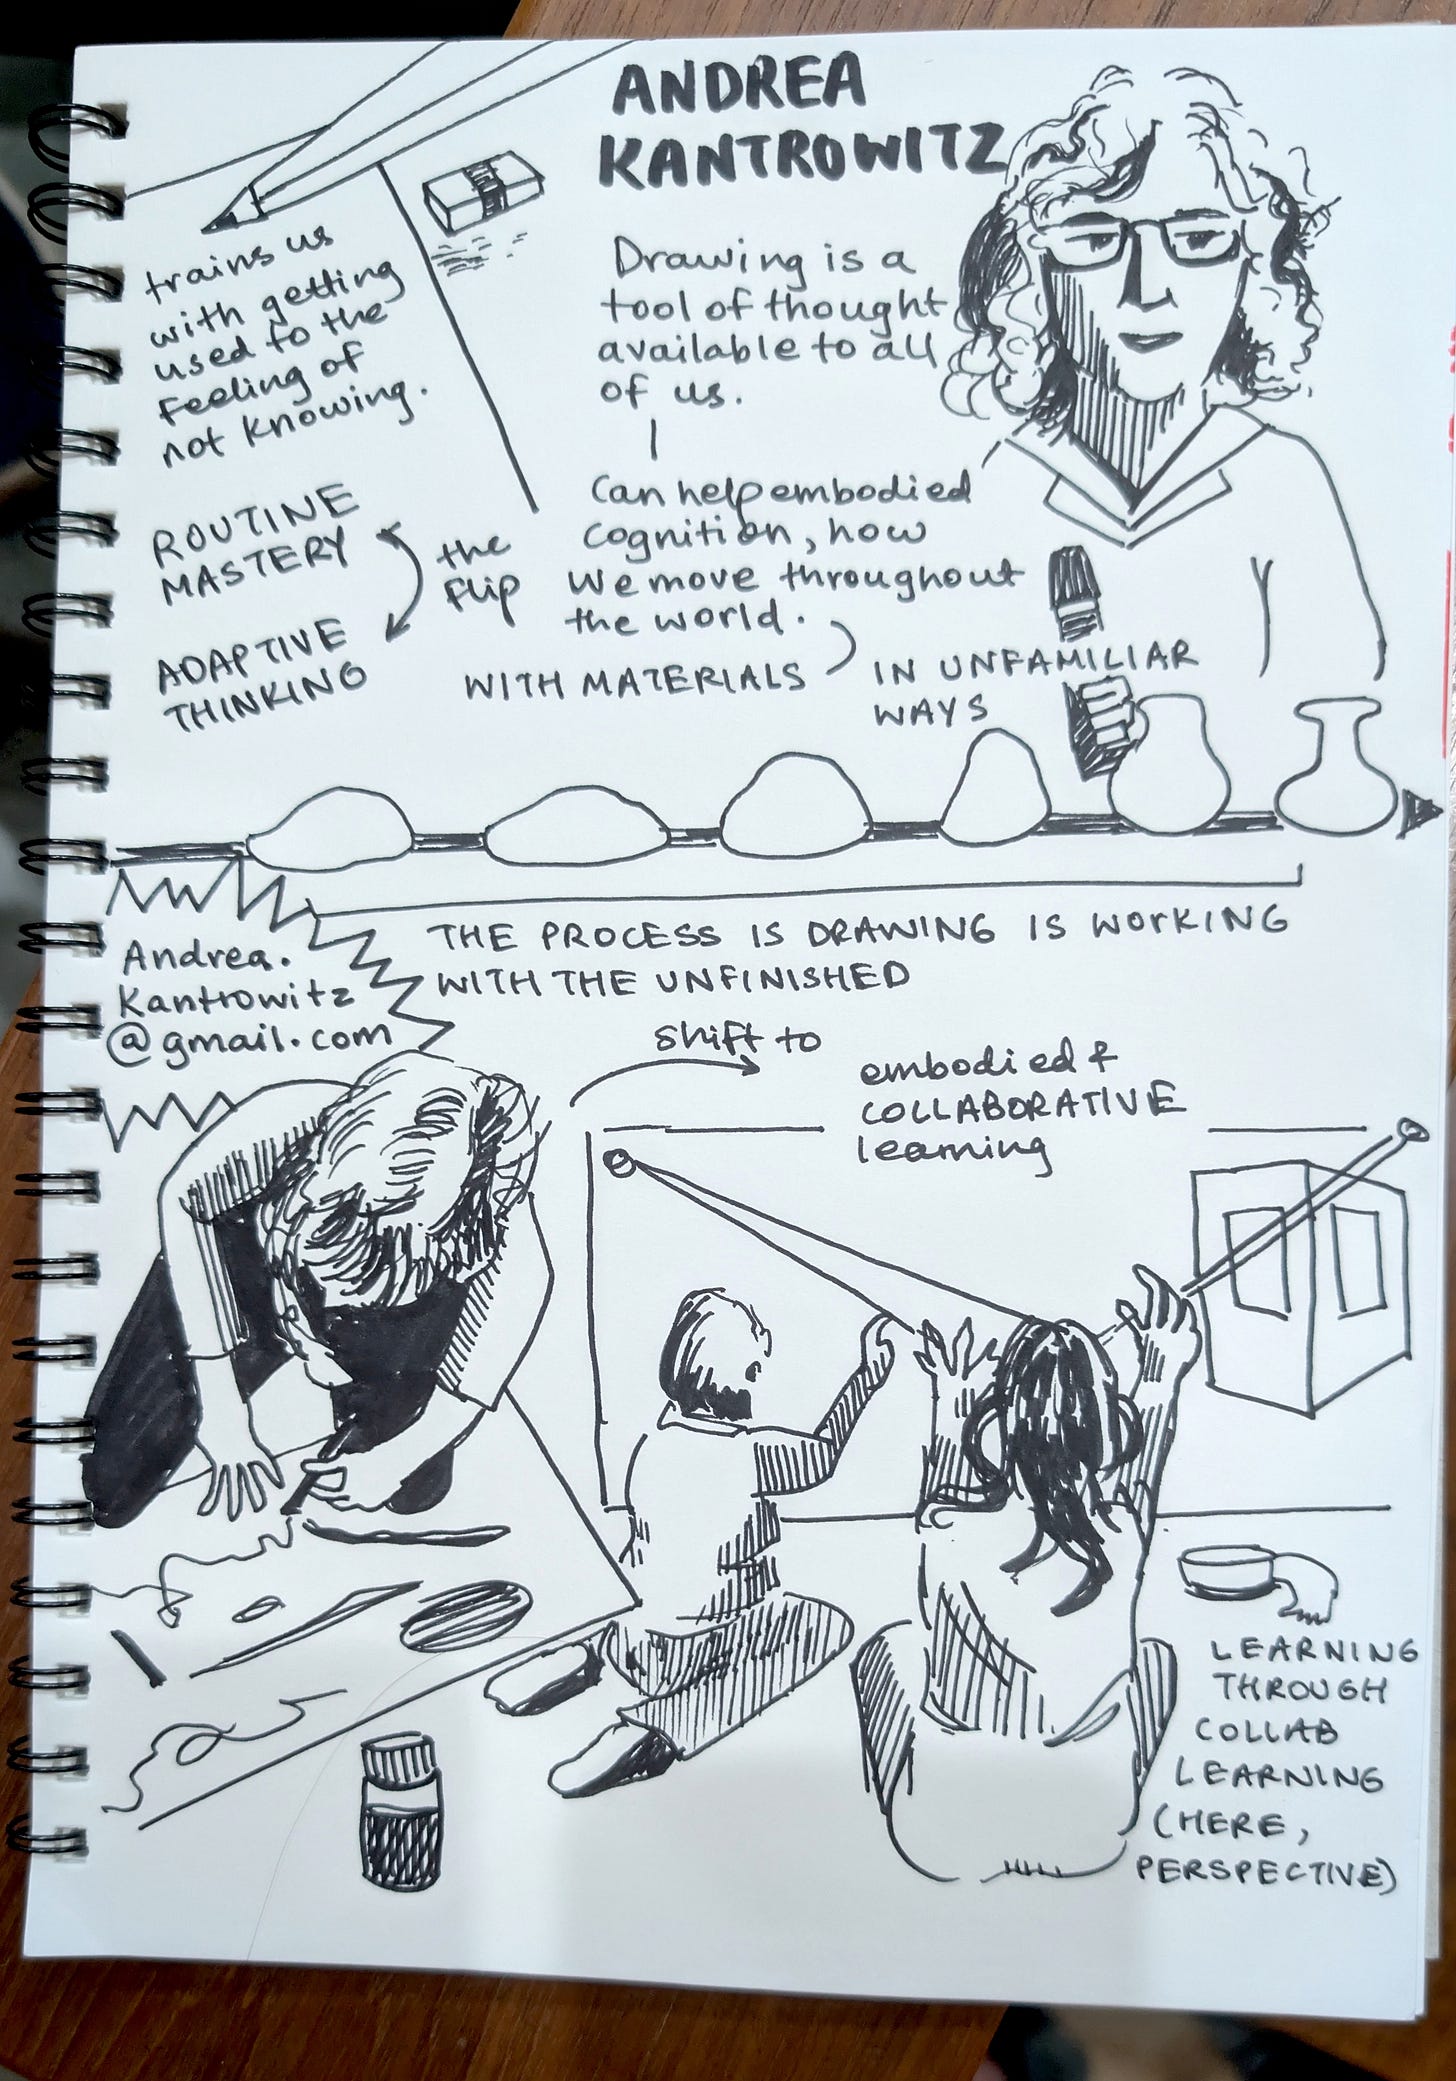 ANDREA
KANTROWITZ
trains us
with getting
used to the
feeling of
not knowing.
ROUTINE
MASTERY
the
flip
ADAPTIVE
THINKING
Drawing is a
tool of thought
available to all
of us.
Can help embodied
cognition, how
we move throughout
the world.
WITH MATERIALS
IN UNFAMILIAR
WAYS
THE PROCESS IS DRAWING IS WORKING
WITH THE UNFINISHED
Andrea.
Kantrowitz
@gmail.com
shift to
embodied &
COLLABORATIVE
learning
LEARNING
THROUGH
COLLAB
LEARNING
(HERE,
PERSPECTIVE)